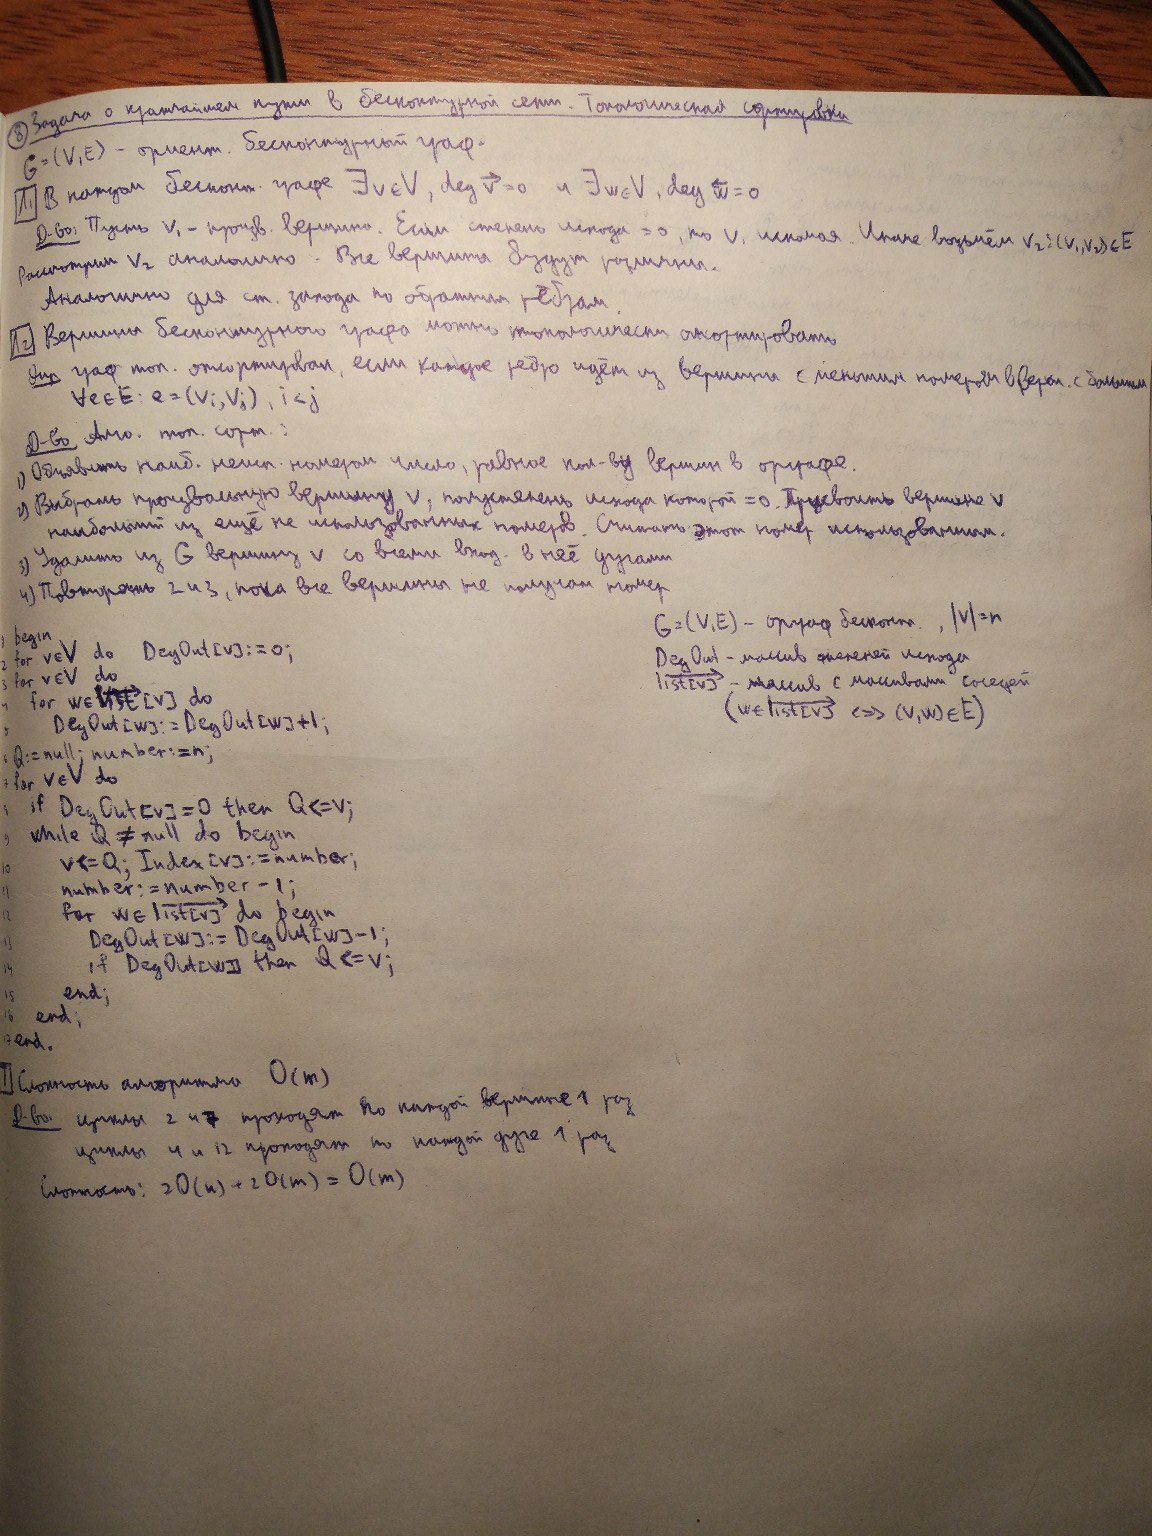 8 Задача о кратчайшем пути в бесконтурной сети. Топологическая сортировка
G=(V,E) - ориент. бесконтурный граф.
Л1 В каждом бесконт. графе ∃v∈V, deg v⃗=0 и ∃w∈V, deg w⃖=0
Д-во: Пусть v₁ - произв. вершина. Если степень исхода =0, то v₁ искомая. Иначе возьмём v₂:(v₁,v₂)∈E
Рассмотрим v₂ аналогично. Все вершины будут различны.
Аналогично для ст. захода по обратным рёбрам.
Л2 Вершины бесконтурного графа можно топологически отсортировать
Опр граф топ. отсортирован, если каждое ребро идёт из вершины с меньшим номером в верш. с большим
∀e∈E: e=(vᵢ,vⱼ), i<j
Д-во Алг. топ. сорт.:
1) Объявить наиб. неисп. номером число, равное кол-ву вершин в орграфе.
2) Выбрать произвольную вершину v, полустепень исхода которой =0. Присвоить вершине v
наибольший из ещё не использованных номеров. Считать этот номер использованным.
3) Удалить из G вершину v со всеми вход. в неё дугами
4) Повторять 2 и 3, пока все вершины не получат номер
G=(V,E) - орграф бесконт., |V|=n
DegOut - массив степеней исхода
list[v]⃗ - массив с массивами соседей
(w∈list[v]⃗ <=> (v,w)∈E)
1 begin
2 for v∈V do DegOut[v]:=0;
3 for v∈V do
4 for w∈list⃗[v] do
5 DegOut[w]:=DegOut[w]+1;
6 Q:=null; number:=n;
7 for v∈V do
8 if DegOut[v]=0 then Q<=v;
9 while Q≠null do begin
10 v<=Q; Index[v]:=number;
11 number:=number-1;
12 for w∈list[v]⃗ do begin
13 DegOut[w]:=DegOut[w]-1;
14 if DegOut[w] then Q<=v;
15 end;
16 end;
17 end.
Т Сложность алгоритма O(m)
Д-во: Циклы 2 и 7 проходят по каждой вершине 1 раз
циклы 4 и 12 проходят по каждой дуге 1 раз
Сложность: 2O(n)+2O(m)=O(m)